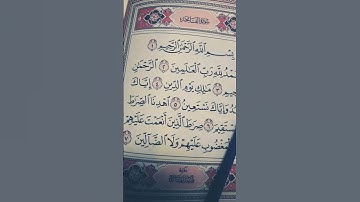 بِسْمِ اللَّهِ الرَّحْمَٰنِ الرَّحِيمِ ١
مْدُ لِلَّهِ رَبِّ الْعَالَمِينَ ٢ الرَّحْمَٰنِ
يمِ ٣ مَالِكِ يَوْمِ الدِّينِ ٤ إِيَّاكَ
دُ وَإِيَّاكَ نَسْتَعِينُ ٥ اهْدِنَا الصِّرَاطَ
سْتَقِيمَ ٦ صِرَاطَ الَّذِينَ أَنْعَمْتَ عَلَيْهِمْ
الْمَغْضُوبِ عَلَيْهِمْ وَلَا الضَّالِّينَ ٧